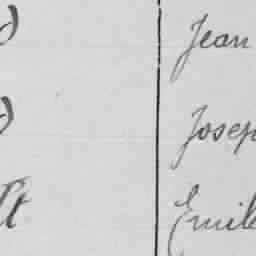 Jean
Josep
Emile